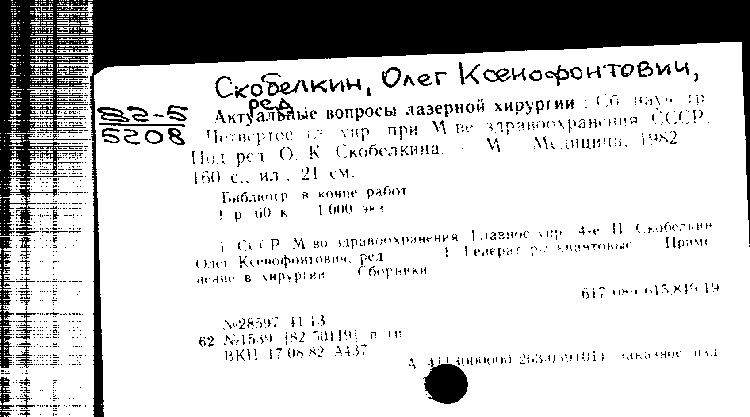 Скобелкин, Олег Ксенофонтович,
ред.
82-5
5208
Актуальные вопросы лазерной хирургии : Сб. науч. тр.
Четвертое гл. упр. при М-ве здравоохранения СССР.
Под ред. О. К. Скобелкина. - М. Медицина, 1982
160 с., ил., 21 см.
Библиогр. в конце работ
1 р. 60 к. 1000 экз.
1. СССР. М-во здравоохранения. Главное упр. 4-е. II. Скобелкин
Олег Ксенофонтович, ред. 1. Генераторы квантовые Приме-
нение в хирургии Сборники
№28597 41 13
62 №1539 [82-50119] п тп
ВКП 17.08.82 А437
заказное изд.